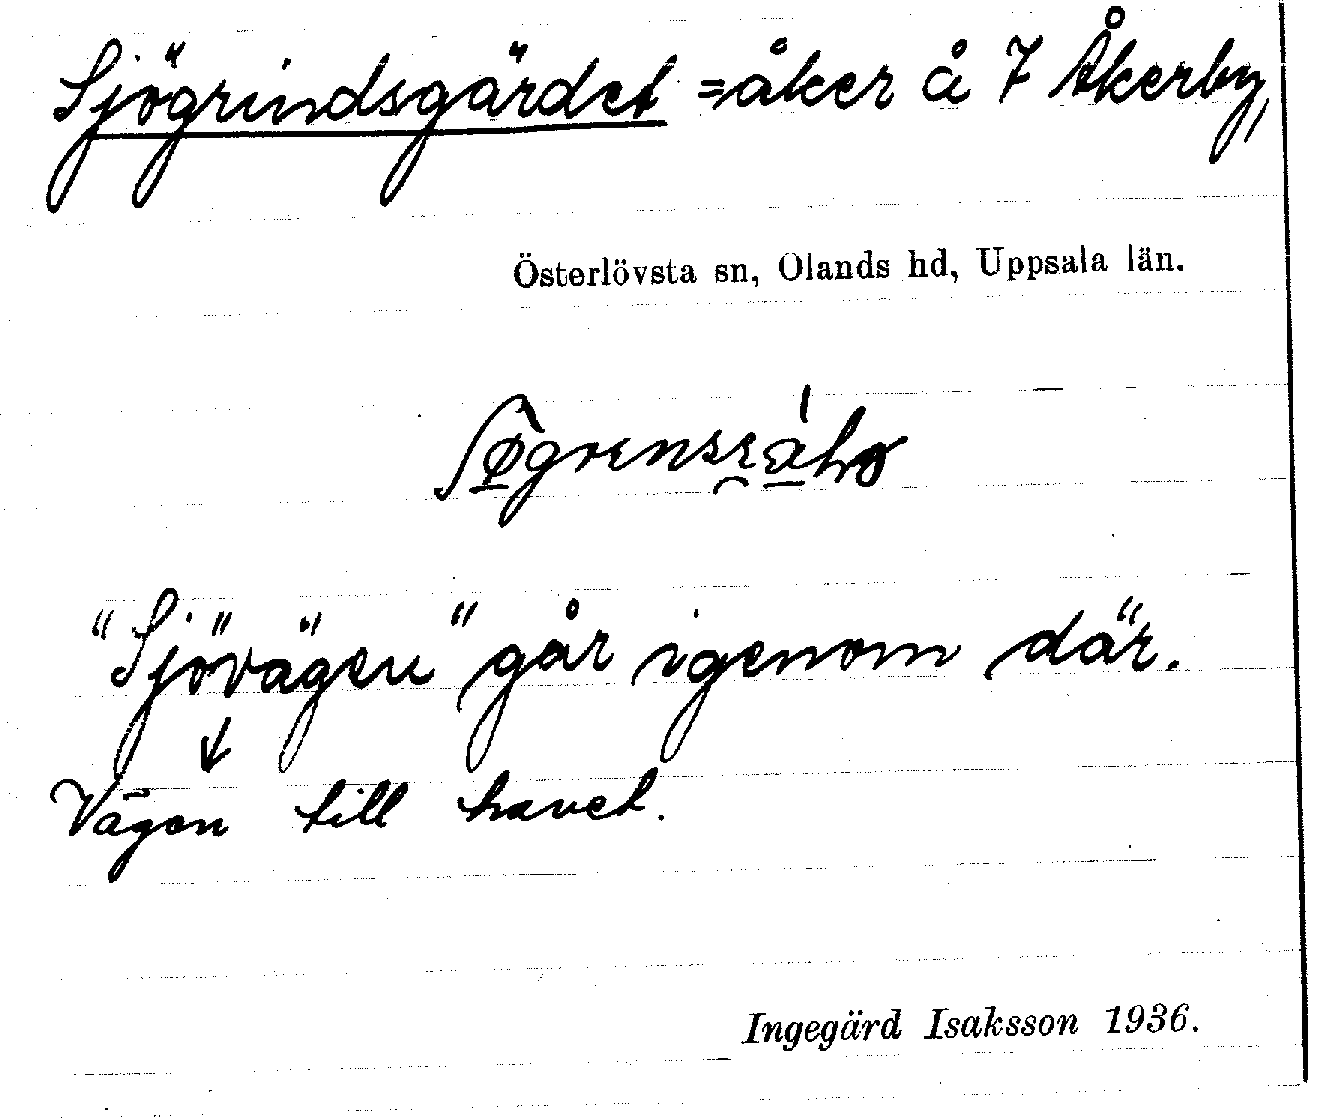 Sjögrindsgärdet = åker å 7 Åkerby,
Österlövsta sn, Olands hd, Uppsala län.
"Sjövägen" går igenom där.
↓
Vägen till havet.
Ingegärd Isaksson 1936.